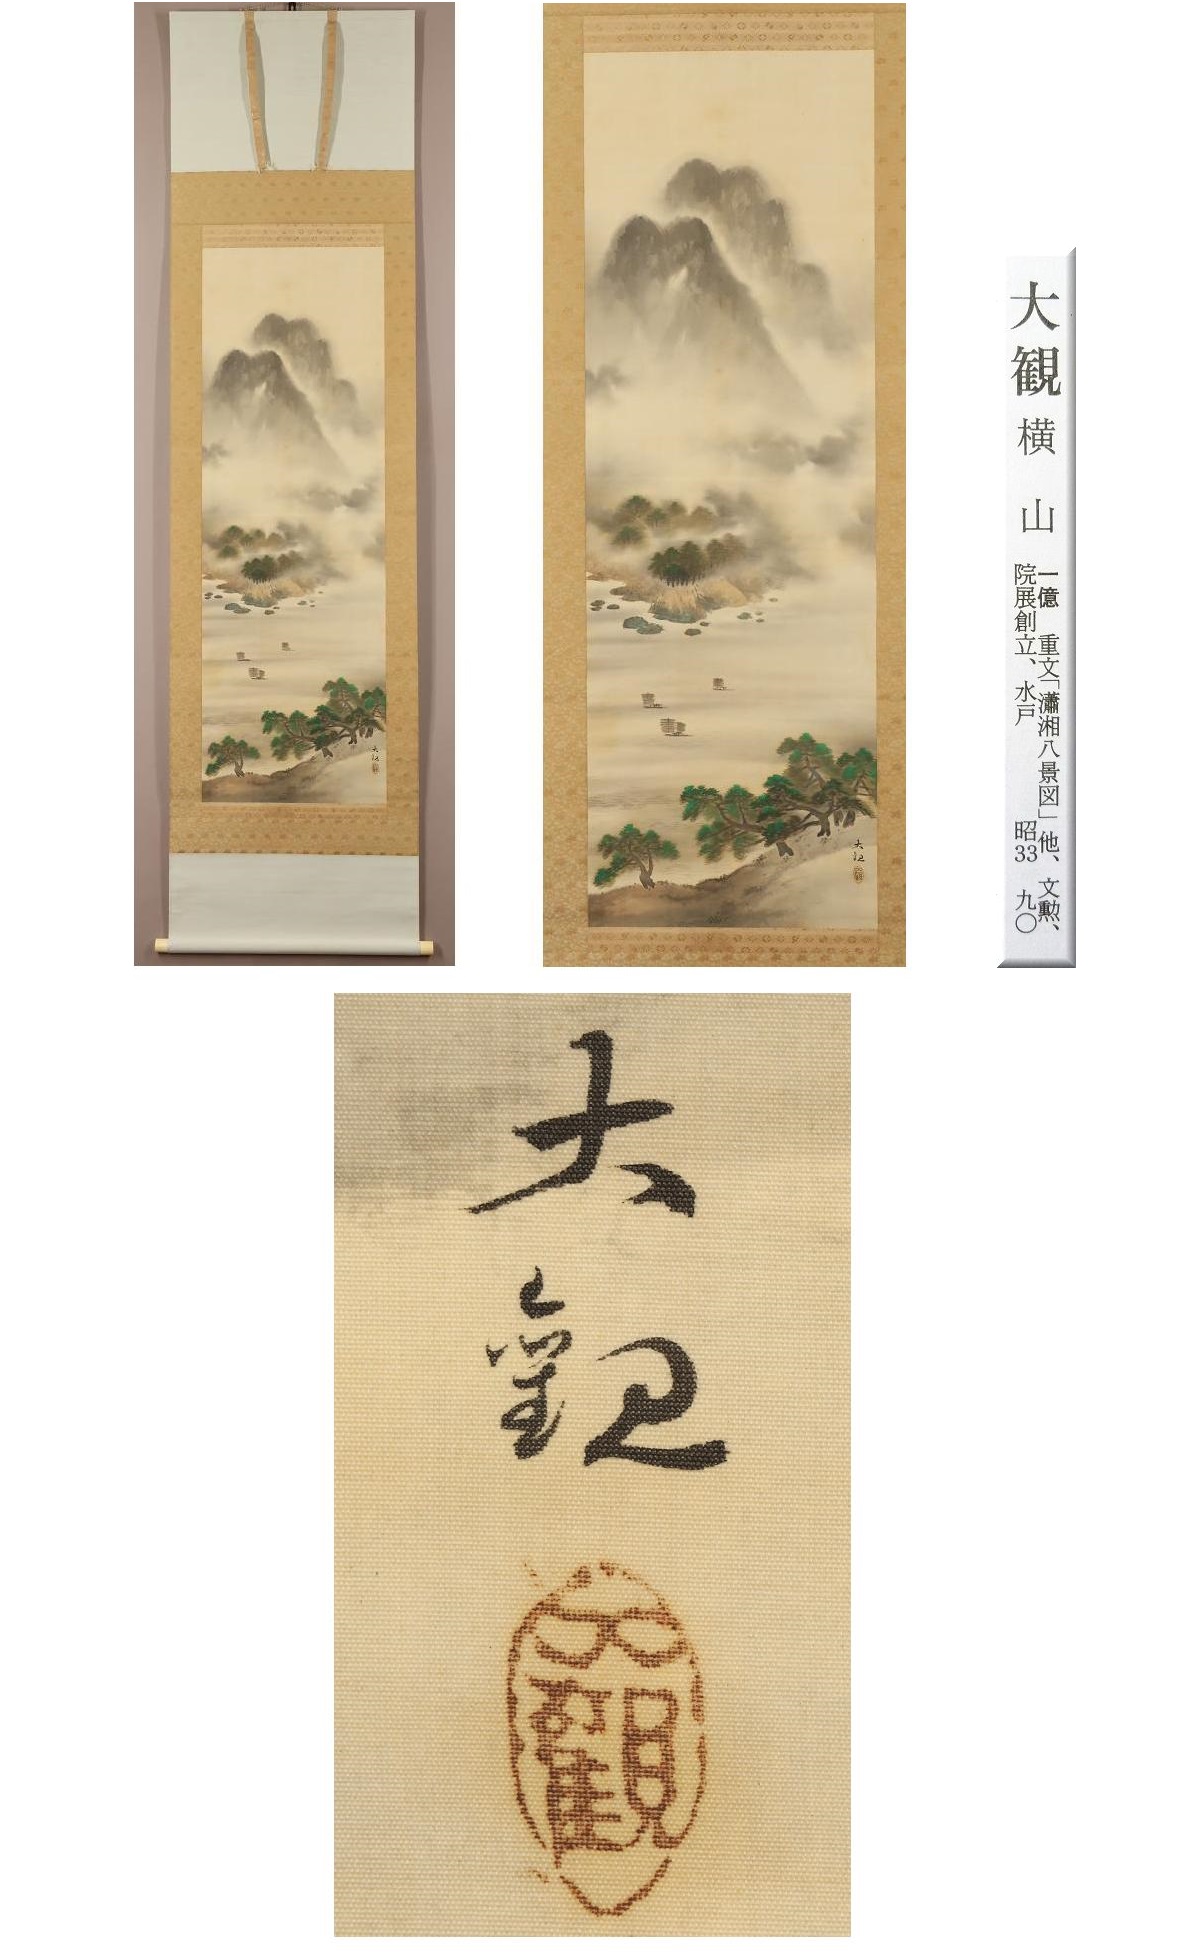 大観
大観
大観 横山
一億 重文「瀟湘八景図」他、文勲、
院展創立、水戸 昭33 九〇
大観
大観